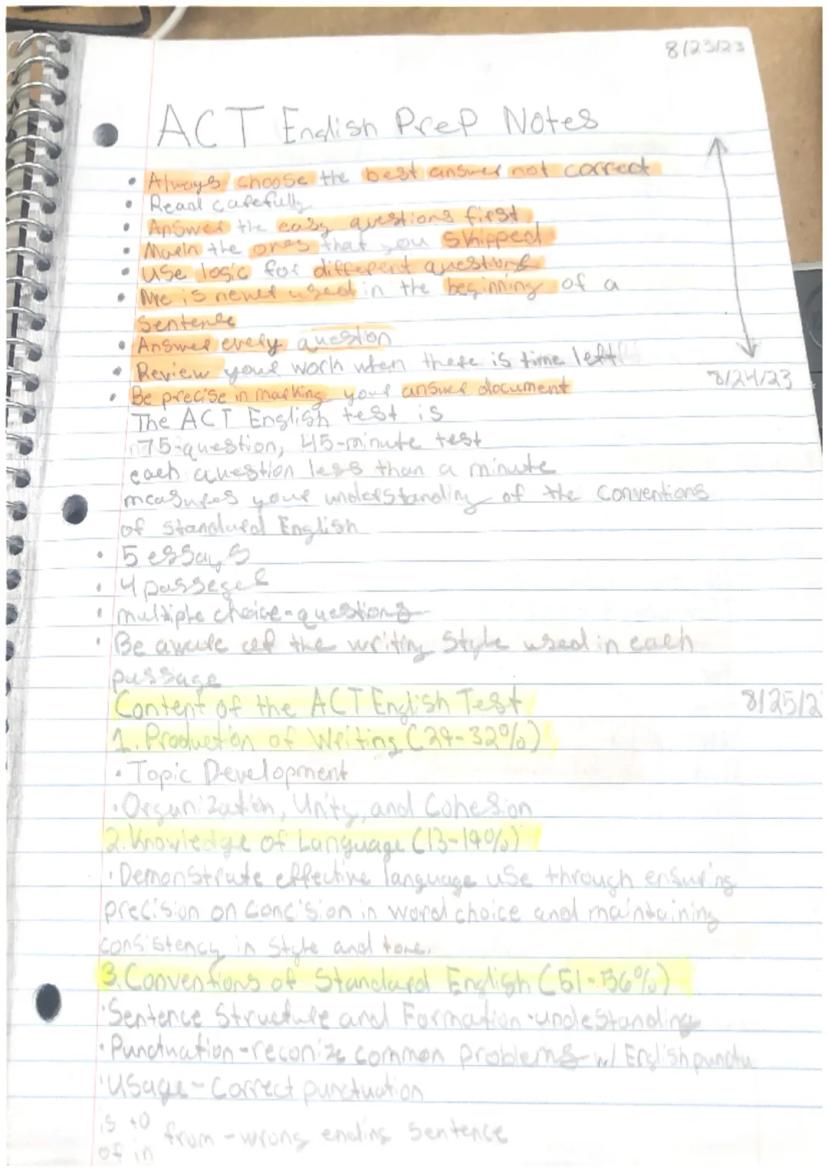 8/23/23
ACT English Prep Notes
• Always choose the best answer not correct
• Read carefully
• Answer the easy questions first
• Mark the ones that you skipped
• Use logic for different questions
• Me is never used in the beginning of a
sentence
• Answer every question
• Review your work when there is time left
8/24/23
• Be precise in marking your answer document
The ACT English test is
75-question, 45-minute test
each question less than a minute
measures your understanding of the conventions
of standard English
• 5 essays
• 4 passeges
• multiple choice-questions
• Be aware of the writing style used in each
passage
Content of the ACT English Test
8/25/2
1. Production of Writing (29-32%)
• Topic Development
• Organization, Unity, and Cohesion
2. Knowledge of Language (13-19%)
• Demonstrate effective language use through ensuring
precision on concision in word choice and maintaining
consistency in style and tone.
3. Conventions of Standard English (51-56%)
• Sentence Structure and Formation-undestanding
• Punctuation-reconize common problems w/ English punctu
• Usage-Correct punctuation
is to
from-wrong ending sentence
of in